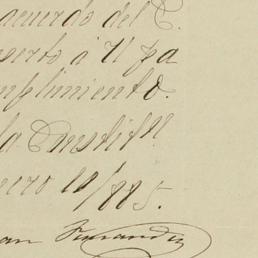 acuerdo del C.
nserto à U pa
mplimiento.
la Constitn
nero 10/885.
an Fernandez